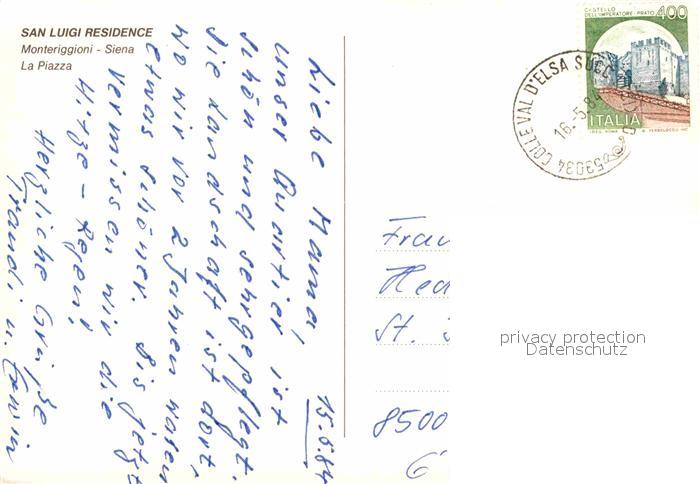 SAN LUIGI RESIDENCE
Monteriggioni - Siena
La Piazza
15.5.84
Liebe Mama,
unser Quartier ist
schön und sehr gepflegt.
die Landschaft ist dort,
wo wir vor 2 Jahren waren
etwas schöner. Bis jetzt
vermissen wir die
Hitze - Regen!
Herzliche Grüße
Traudi u. Erwin
CASTELLO
DELL'IMPERATORE - PRATO
400
ITALIA
53034 COLLE VAL D'ELSA SUCC.
16.-5.8
Frau
Hed
St.
8500
privacy protection
Datenschutz